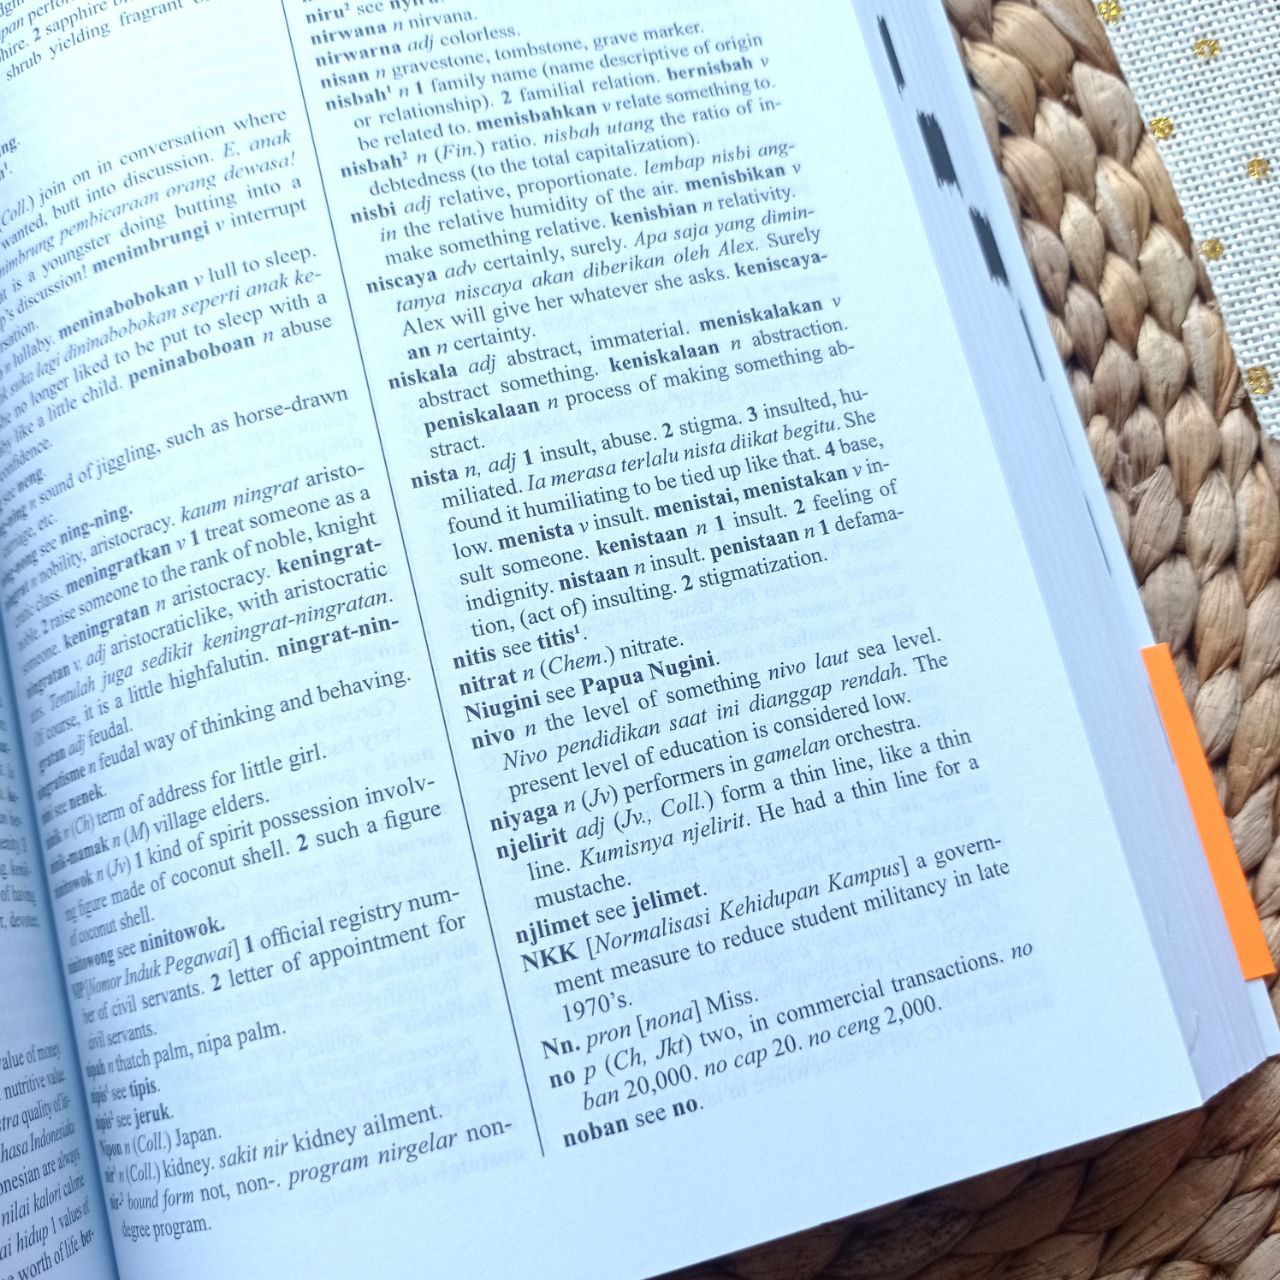 pan perfor
hire. 2 sapphire
shrub yielding fragrant
ng.
Coll.) join on in conversation where
wanted, butt into discussion. E. anak
nimbrung pembicaraan orang dewasa!
is a youngster doing butting into a
's discussion! menimbrungi v interrupt
lullaby. meninabobokan v lull to sleep.
suka lagi dininabobokan seperti anak ke-
he no longer liked to be put to sleep with a
by like a little child. peninaboboan n abuse
see neng.
n sound of jiggling, such as horse-drawn
carriage, etc.
see ning-ning.
n nobility, aristocracy. kaum ningrat aristo-
cratic class. meningratkan v 1 treat someone as a
noble. 2 raise someone to the rank of noble, knight
someone. keningratan n aristocracy. keningrat-
ningratan v, adj aristocraticlike, with aristocratic
Tentulah juga sedikit keningrat-ningratan.
Of course, it is a little highfalutin. ningrat-nin-
gratan adj feudal.
ningratisme n feudal way of thinking and behaving.
see nenek.
ninik n (Ch) term of address for little girl.
ninik-mamak n (M) village elders.
ninitowok n (Jv) 1 kind of spirit possession involv-
ing figure made of coconut shell. 2 such a figure
of coconut shell.
ninitowong see ninitowok.
NIP [Nomor Induk Pegawai] 1 official registry num-
ber of civil servants. 2 letter of appointment for
civil servants.
nipah n thatch palm, nipa palm.
nipis¹ see tipis.
nipis² see jeruk.
Nipon n (Coll.) Japan.
nir¹ n (Coll.) kidney. sakit nir kidney ailment.
nir-² bound form not, non-. program nirgelar non-
degree program.
value of money.
nutritive value.
quality of li-
hasa Indonesiaku
onesian are always
nilai kalori calorie
ai hidup 1 values of
worth of life
niru² see
nirwana n nirvana.
nirwarna adj colorless.
nisan n gravestone, tombstone, grave marker.
nisbah¹ n 1 family name (name descriptive of origin
or relationship). 2 familial relation. bernisbah v
be related to. menisbahkan v relate something to.
nisbah² n (Fin.) ratio. nisbah utang the ratio of in-
debtedness (to the total capitalization).
nisbi adj relative, proportionate. lembap nisbi ang-
in the relative humidity of the air. menisbikan v
make something relative. kenisbian n relativity.
niscaya adv certainly, surely. Apa saja yang dimin-
tanya niscaya akan diberikan oleh Alex. Surely
Alex will give her whatever she asks. keniscaya-
an n certainty.
niskala adj abstract, immaterial. meniskalakan v
abstract something. keniskalaan n abstraction.
peniskalaan n process of making something ab-
stract.
nista n, adj 1 insult, abuse. 2 stigma. 3 insulted, hu-
miliated. Ia merasa terlalu nista diikat begitu. She
found it humiliating to be tied up like that. 4 base,
low. menista v insult. menistai, menistakan v in-
sult someone. kenistaan n 1 insult. 2 feeling of
indignity. nistaan n insult. penistaan n 1 defama-
tion, (act of) insulting. 2 stigmatization.
nitis see titis¹.
nitrat n (Chem.) nitrate.
Niugini see Papua Nugini.
nivo n the level of something nivo laut sea level.
Nivo pendidikan saat ini dianggap rendah. The
present level of education is considered low.
niyaga n (Jv) performers in gamelan orchestra.
njelirit adj (Jv., Coll.) form a thin line, like a thin
line. Kumisnya njelirit. He had a thin line for a
mustache.
njlimet see jelimet.
NKK [Normalisasi Kehidupan Kampus] a govern-
ment measure to reduce student militancy in late
1970's.
Nn. pron [nona] Miss.
no p (Ch, Jkt) two, in commercial transactions. no
ban 20,000. no cap 20. no ceng 2,000.
noban see no.